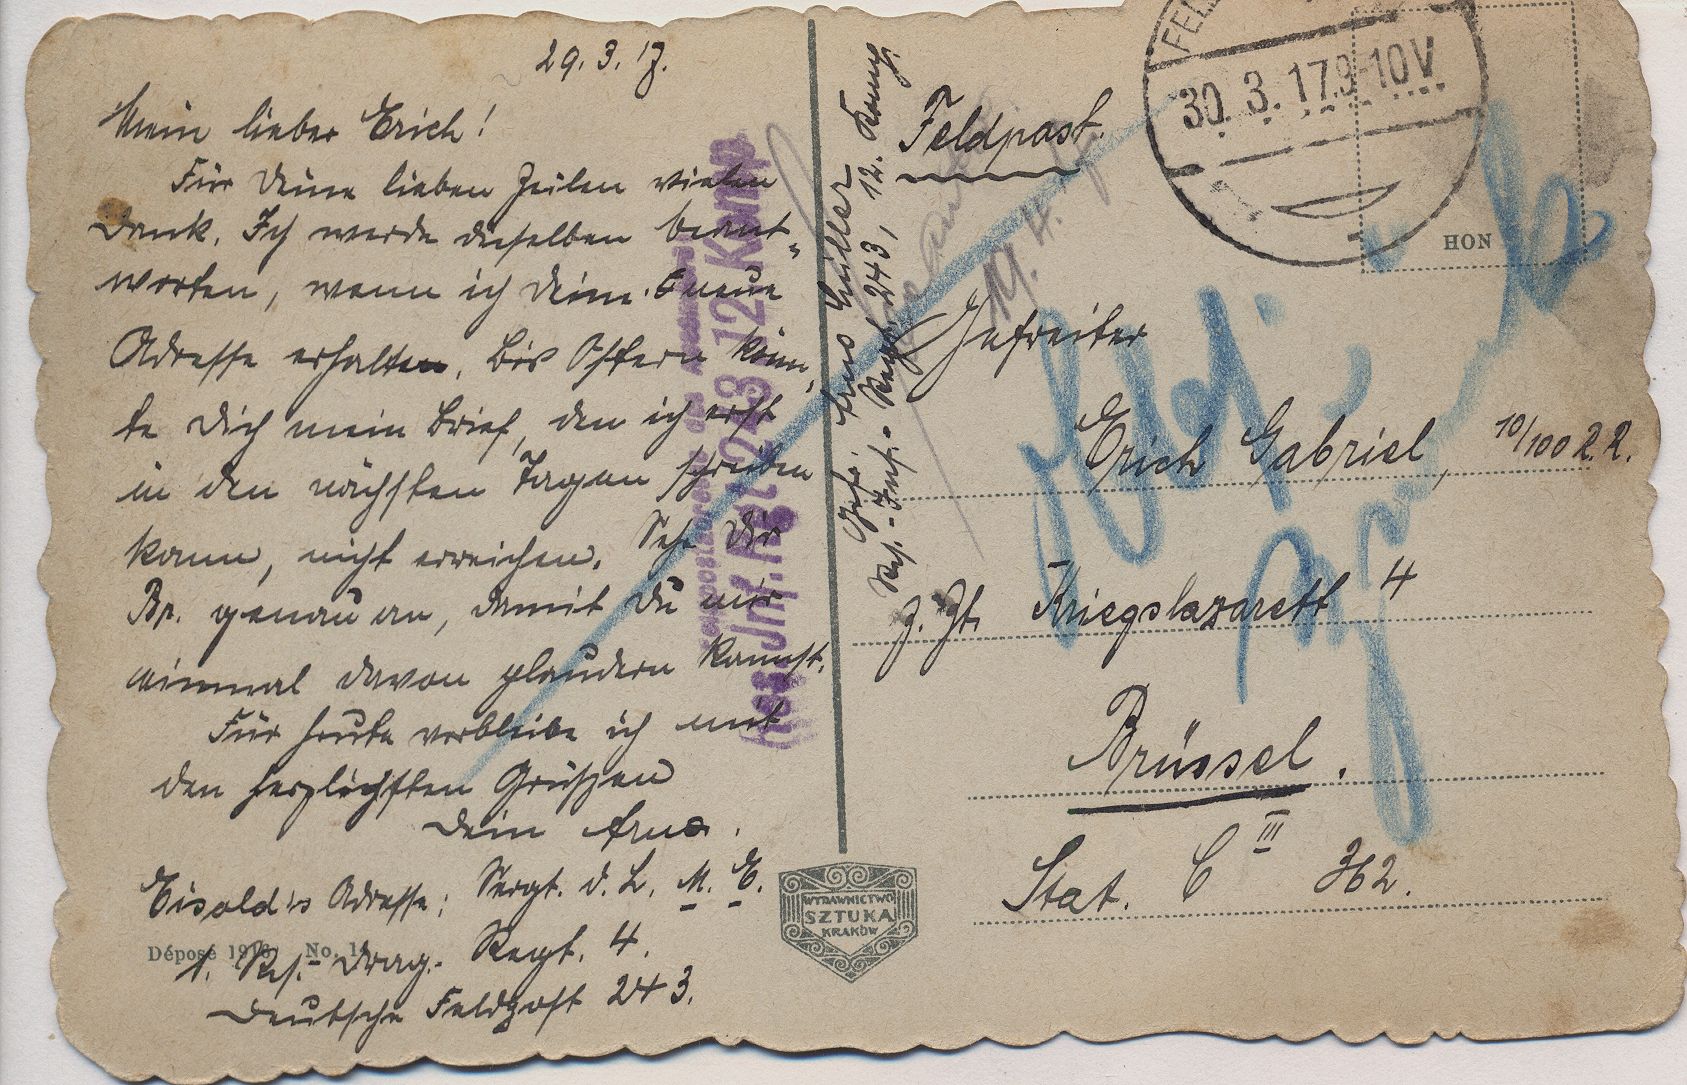 29.3.17.
Mein lieber Erich!
Für Deine lieben Zeilen vielen
Dank. Ich werde dieselben beant-
worten, wenn ich Deine neue
Adresse erhalten. Bis Ostern könn-
te Dich mein Brief, den ich erst
in den nächsten Tagen schreiben
kann, nicht erreichen. Sehe Dir
Br. genau an, damit Du mir
einmal davon plaudern kannst.
Für heute verbleibe ich mit
den herzlichsten Grüßen
Dein Arno.
Eisold's Adresse: Sergt. d. L. M. E.
1. Res.-Drag.-Regt. 4.
Deutsche Feldpost 243.
Déposé 1916 No. 1
Res. Inf. Rgt. 243 12. Komp.
Gefr. Arno
Res.-Inf.-Regt. 243, 12. Komp.
Feldpost.
30.3.17.9-10V
HON
Gefreiter
Erich Gabriel, 10/100 R.R.
z. Zt. Kriegslazarett 4
Brüssel.
Stat. C III 362.
WYDAWNICTWO
SZTUKA
KRAKÓW